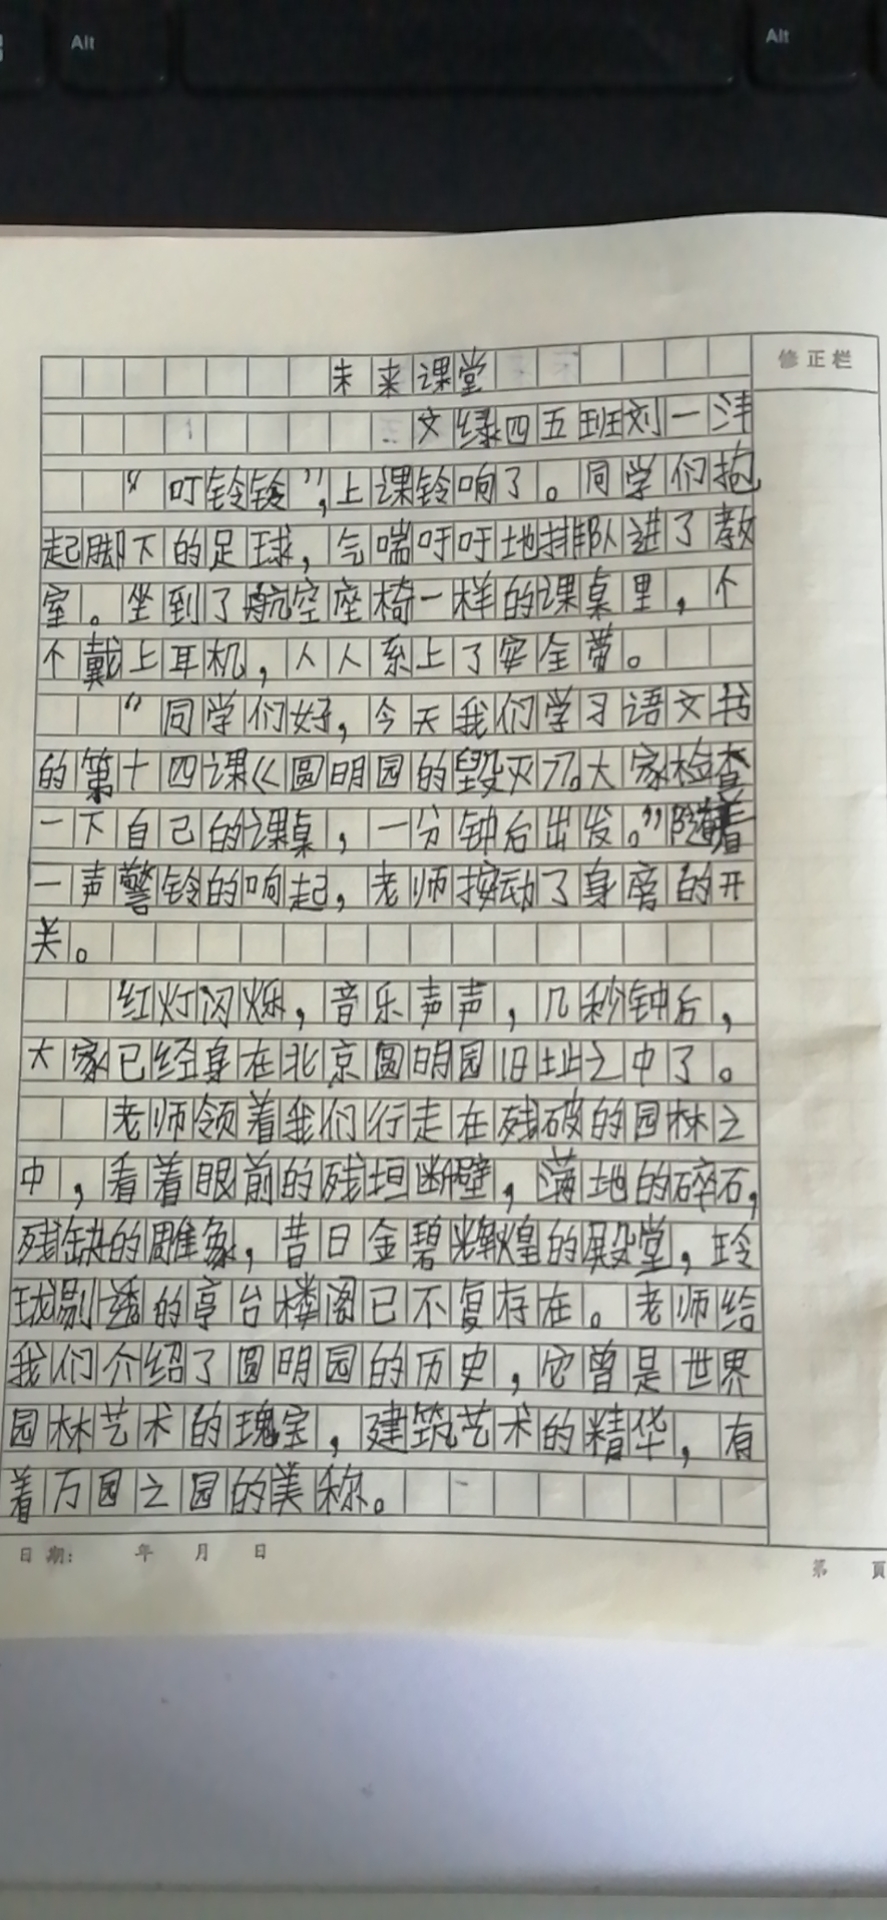 Alt
Alt
修正栏
未来课堂
文绿四五班刘一沣
“叮铃铃”,上课铃响了。同学们抱
起脚下的足球，气喘吁吁地排队进了教
室。坐到了航空座椅一样的课桌里，个
个戴上耳机，人人系上了安全带。
“同学们好，今天我们学习语文书
的第十四课《圆明园的毁灭》。大家检查
一下自己的课桌，一分钟后出发。”随着
一声警铃的响起，老师按动了身旁的开
关。
红灯闪烁，音乐声声，几秒钟后，
大家已经身在北京圆明园旧址之中了。
老师领着我们行走在残破的园林之
中，看着眼前的残垣断壁，满地的碎石，
残缺的雕象，昔日金碧辉煌的殿堂，玲
珑剔透的亭台楼阁已不复存在。老师给
我们介绍了圆明园的历史，它曾是世界
园林艺术的瑰宝，建筑艺术的精华，有
着万园之园的美称。
日期: 年 月 日
第 頁